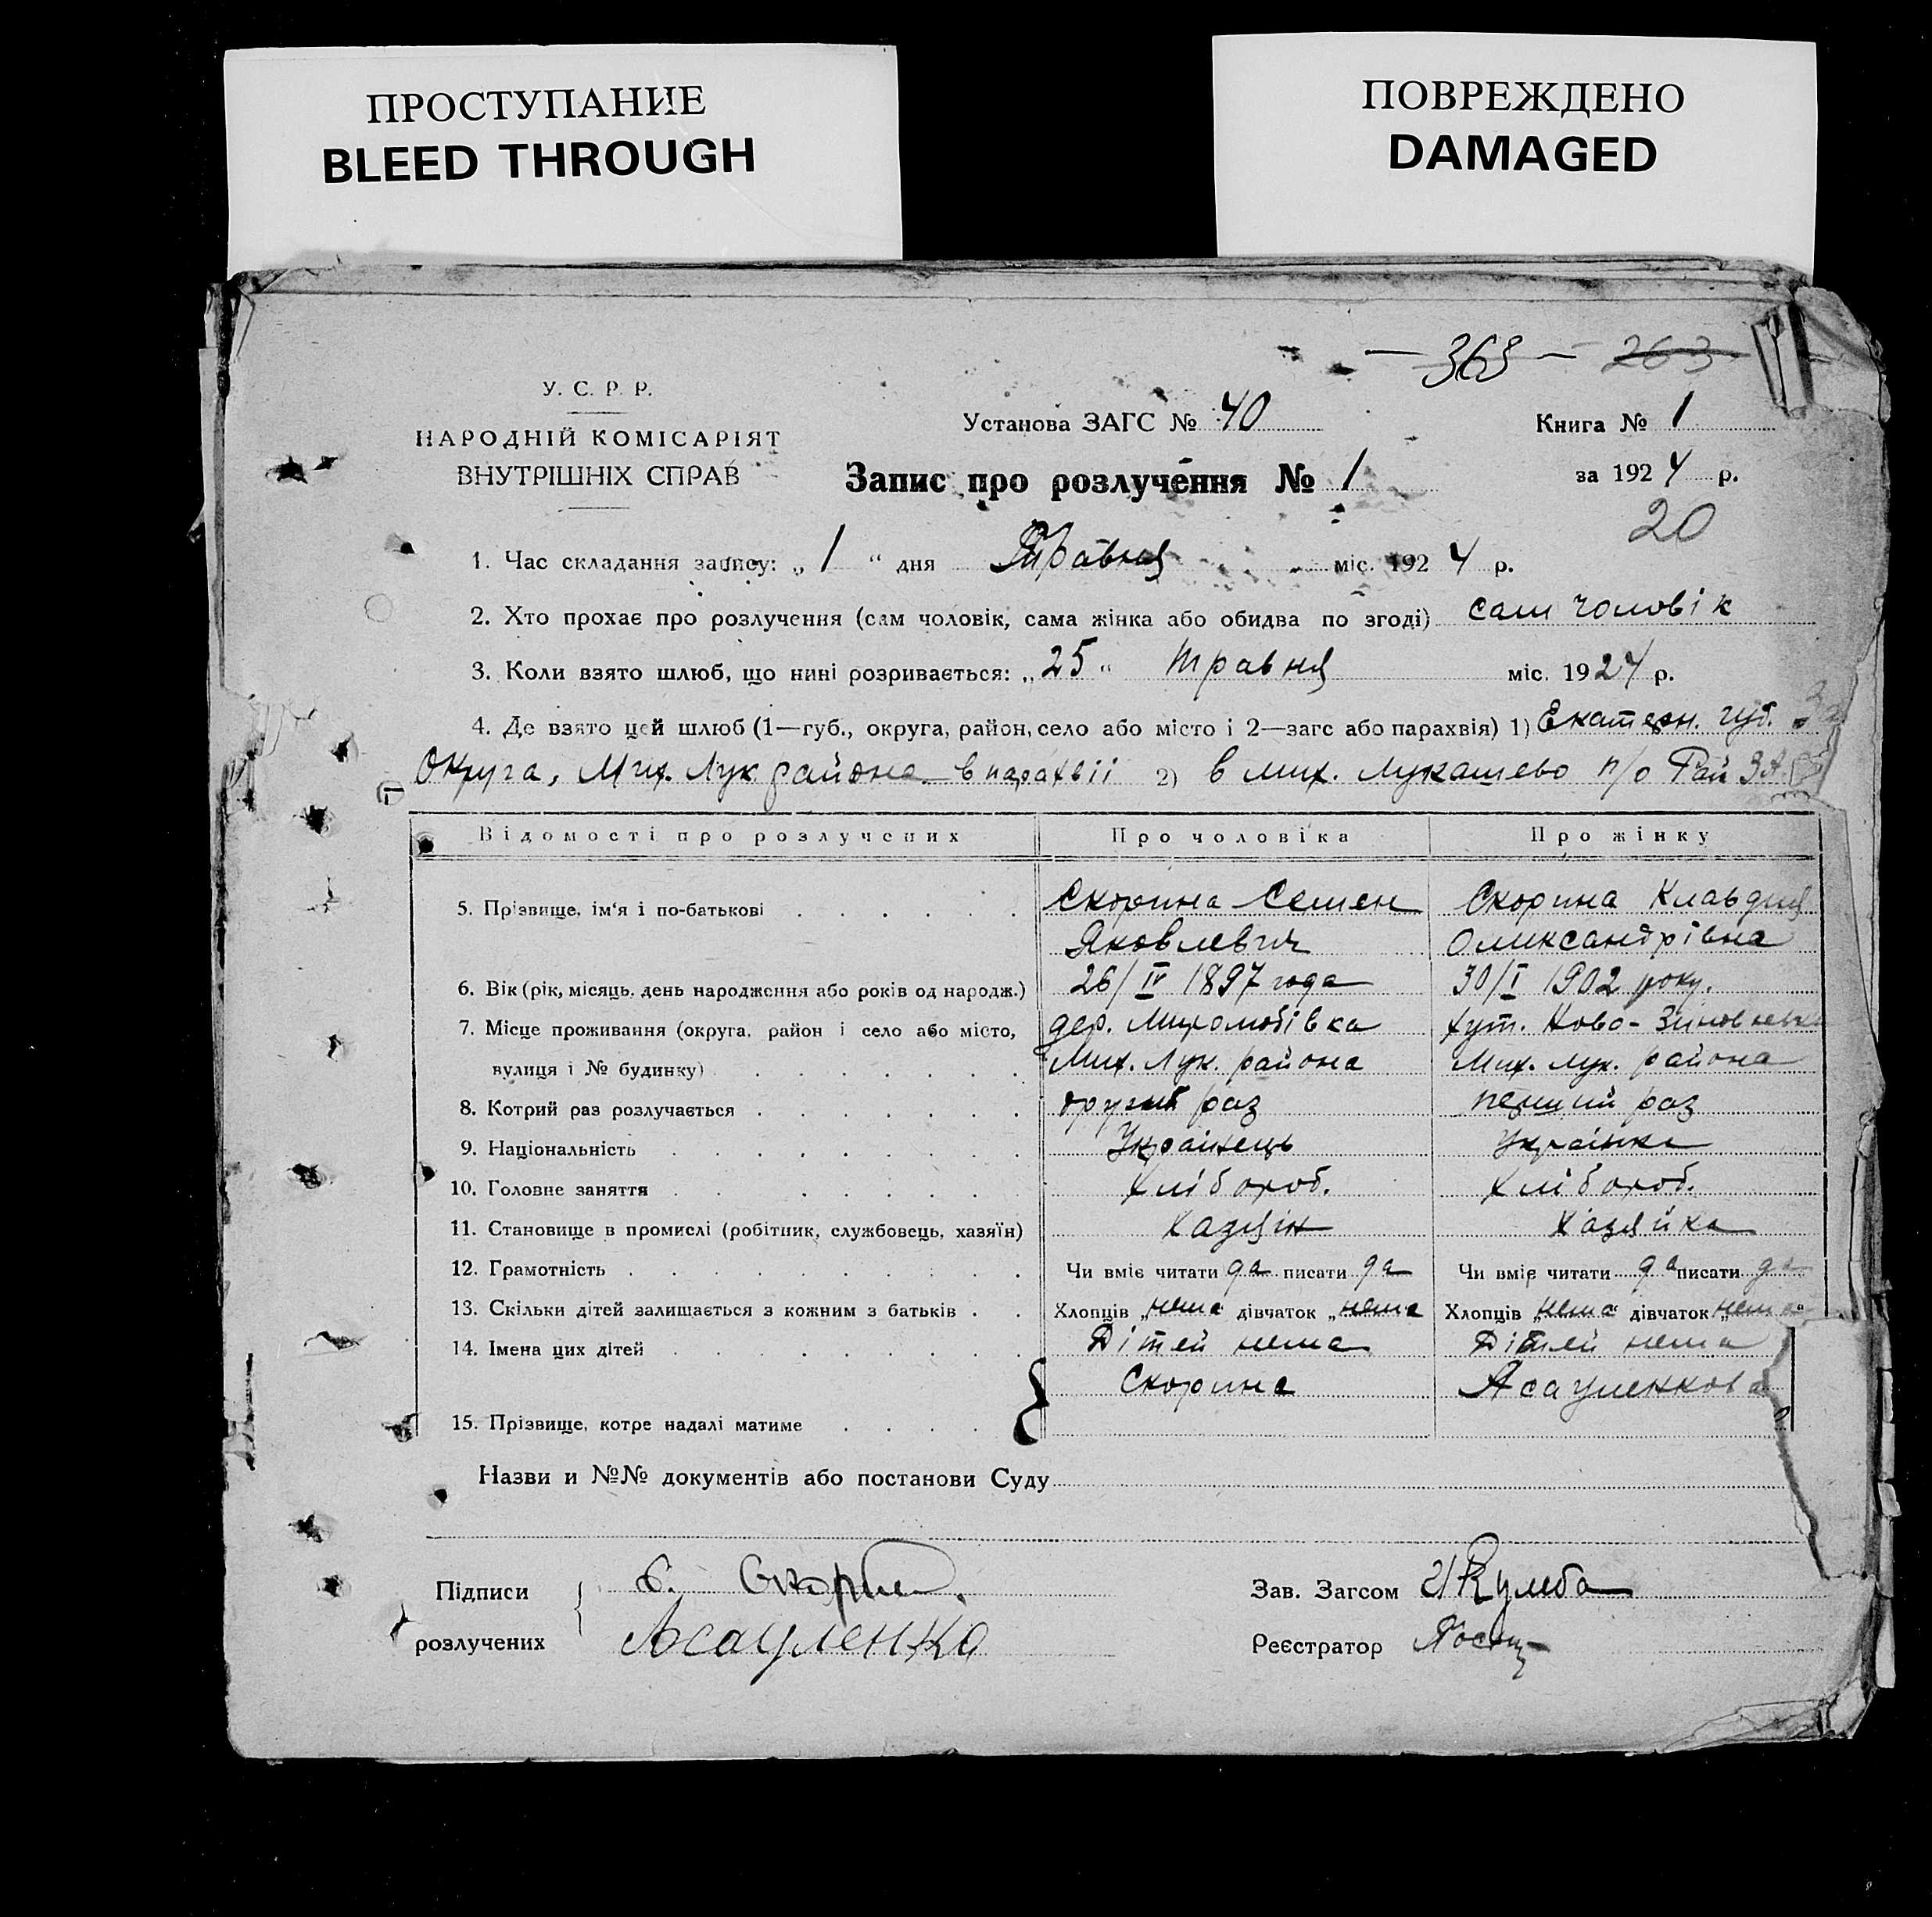 ПРОСТУПАНИЕ
BLEED THROUGH
ПОВРЕЖДЕНО
DAMAGED
— 363 — 263
У. С. Р. Р.
НАРОДНІЙ КОМІСАРІЯТ
ВНУТРІШНІХ СПРАВ
Установа ЗАГС № 40
Книга № 1
Запис про розлучення № 1
за 1924 р.
20
1. Час складання запису: „ 1 “ дня Травня міс. 1924 р.
2. Хто прохає про розлучення (сам чоловік, сама жінка або обидва по згоді) сам чоловік
3. Коли взято шлюб, що нині розривається: „ 25 “ травня міс. 1924 р.
4. Де взято цей шлюб (1—губ., округа, район, село або місто і 2—загс або парахвія) 1) Екатерн. губ.
Округа, Мих. Лук района в парахвіі 2) в Мих. Лукашево п/о Рай
Відомості про розлучених Про чоловіка Про жінку
5. Прізвище, ім‘я і по-батькові Скорина Семен Скорина Клавдия
Яковлевич Олександрівна
6. Вік (рік, місяць, день народження або років од народж.) 26/IV 1897 года 30/I 1902 року.
7. Місце проживання (округа, район і село або місто, дер. Миролюбівка хут. Ново-
вулиця і № будинку) Мих. Лук. района Мих. Лук. района
8. Котрий раз розлучається другий раз перший раз
9. Національність Українець Українка
10. Головне заняття хлібороб. хлібороб.
11. Становище в промислі (робітник, службовець, хазяїн) хазяін хазяйка
12. Грамотність Чи вміє читати да писати да Чи вміє читати да писати да
13. Скільки дітей залишається з кожним з батьків Хлопців „нема“ дівчаток „нема Хлопців „нема“ дівчаток „нема“
14. Імена цих дітей Дітей нема Дітей нема
Скорина Асауленкова
15. Прізвище, котре надалі матиме
Назви и №№ документів або постанови Суду
Підписи С. Скорина Зав. Загсом
розлучених Асауленко Реєстратор